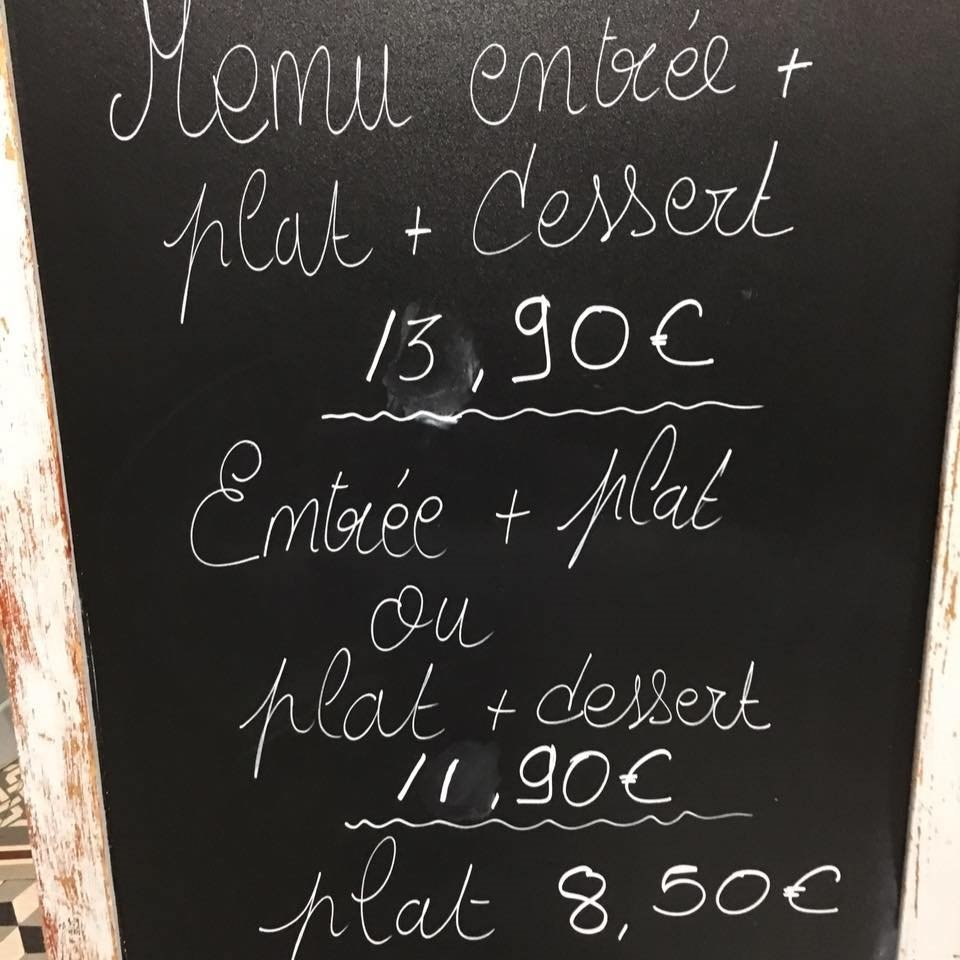 Menu entrée +
plat + dessert
13,90€
Entrée + plat
ou
plat + dessert
11,90€
plat 8,50€